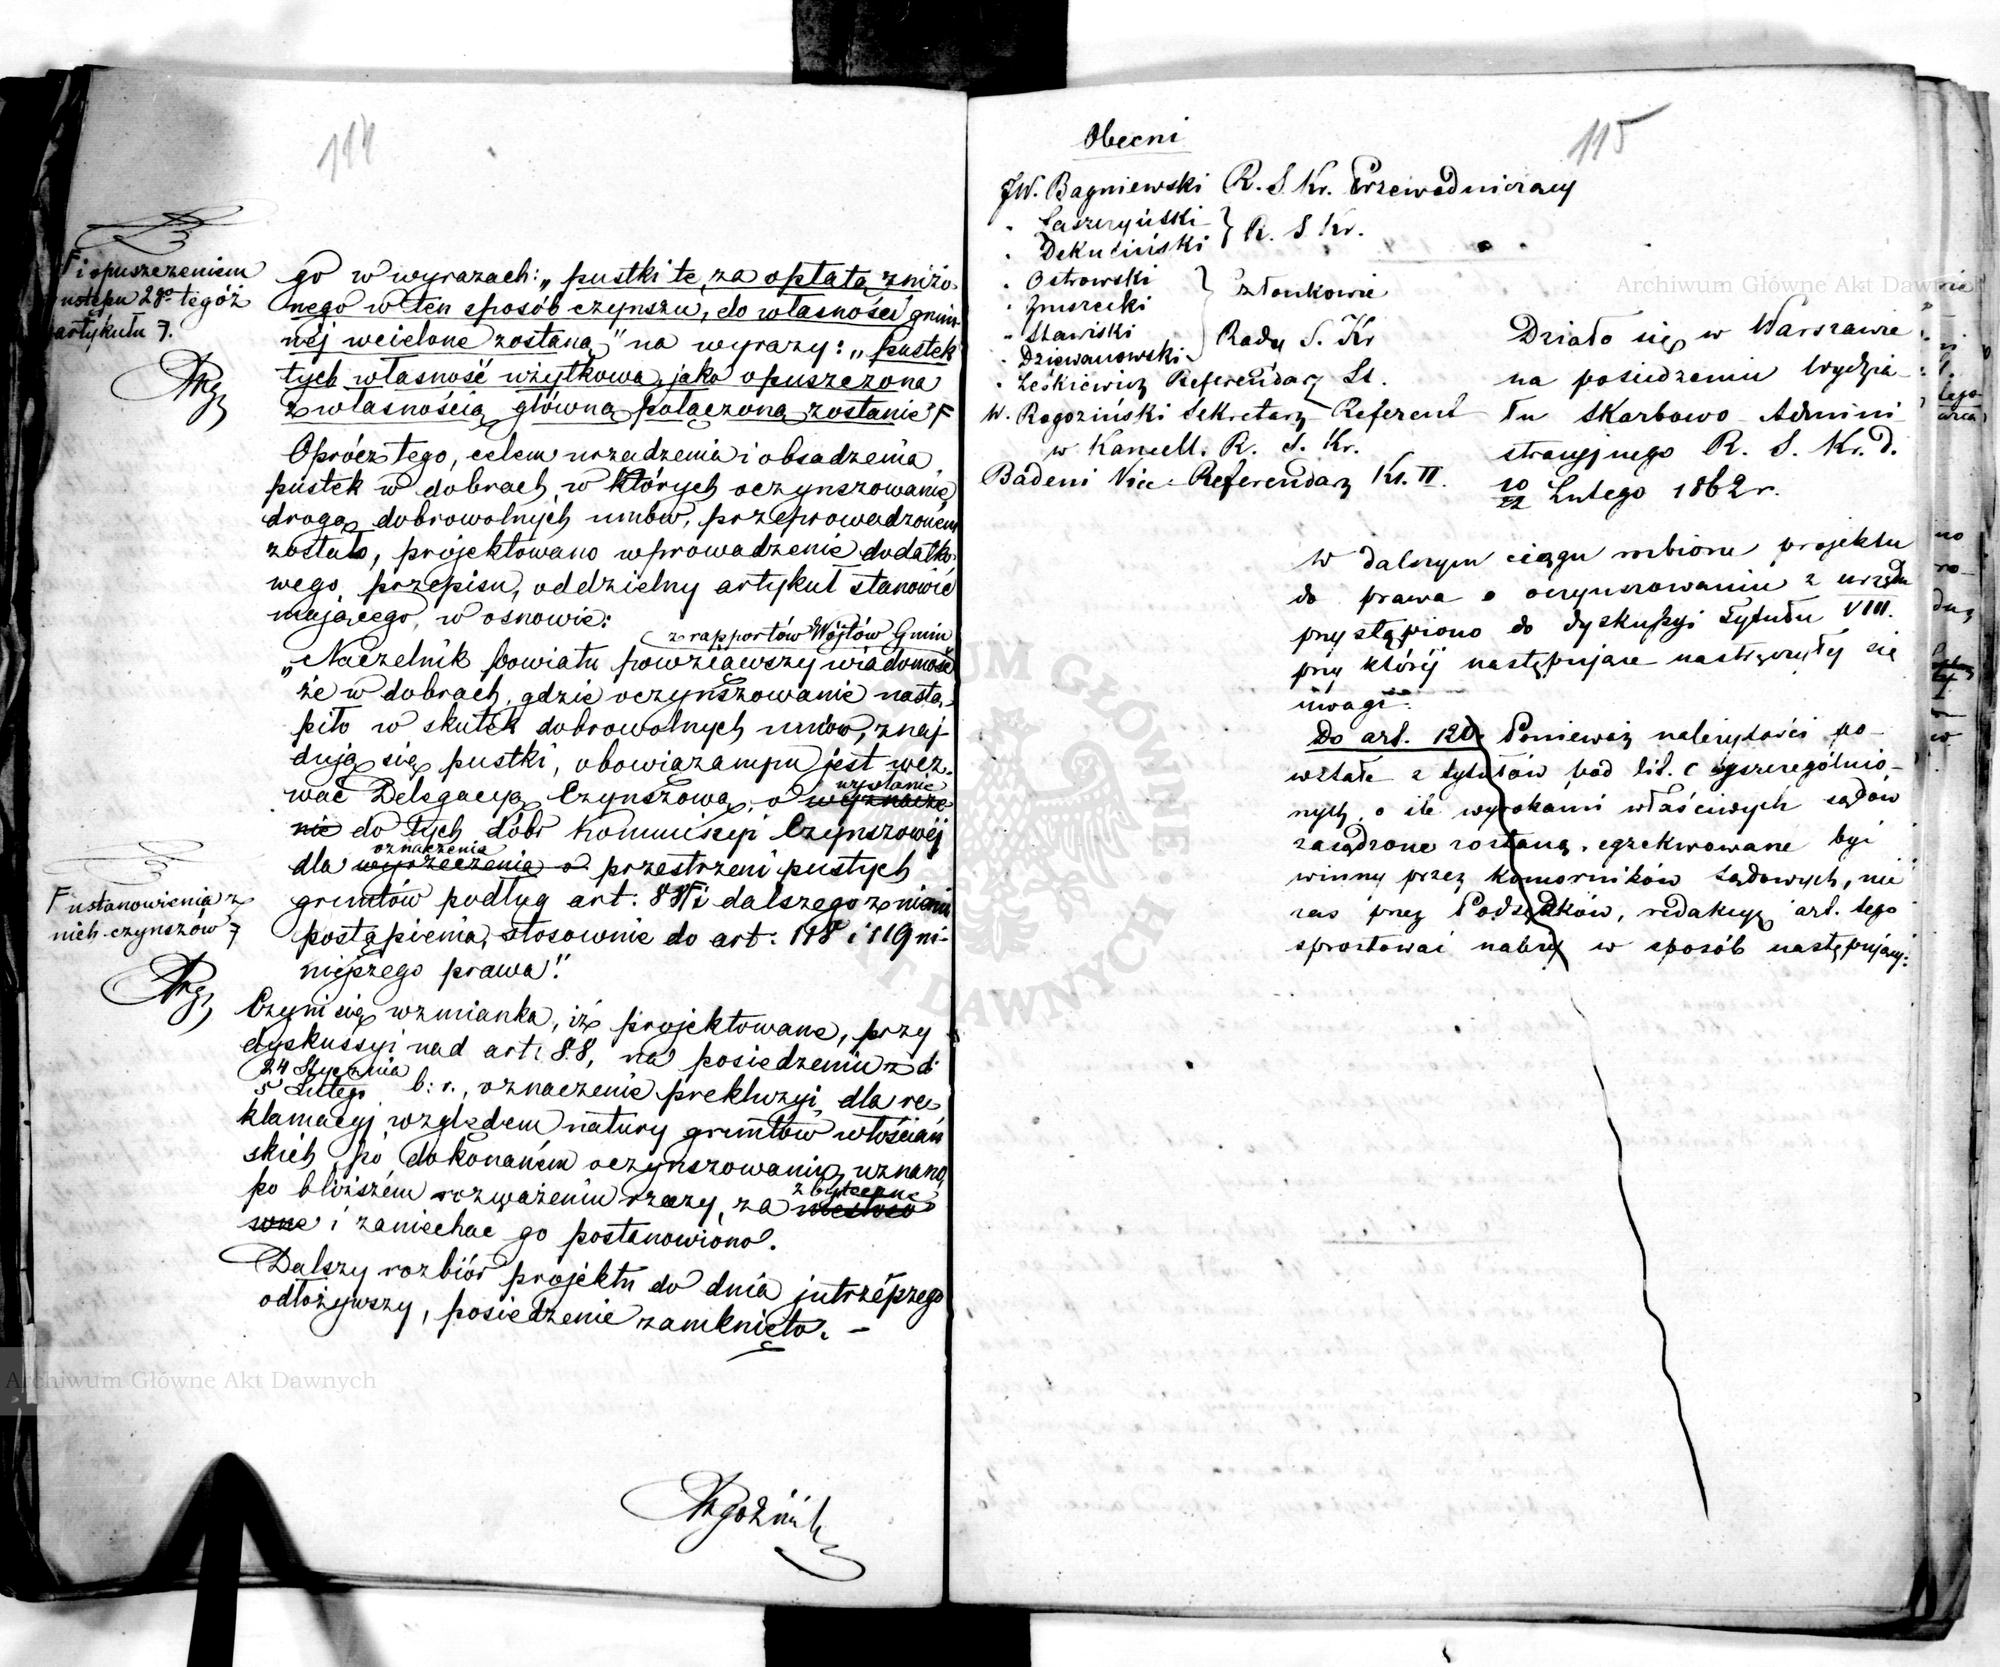 114
F i opuszczeniem
ustępu 2go tegóż
artykułu F.
go w wyrazach: „pustki te, za opłatą zniżo-
nego w ten sposób czynszu, do własności gmin-
nej wcielone zostaną" na wyrazy: „pustek
tych własność użytkowa, jako opuszczona
z własnością główną połączoną zostanie" F
Oprócz tego, celem urządzenia i obsadzenia
pustek w dobrach, w których oczynszowanie
drogą dobrowolnych umów, przeprowadzoném
zostało, projektowano wprowadzenie dodatko-
wego, przepisu, oddzielny artykuł stanowić
mającego, w osnowie:
z rapportów Wójtów Gmin
„Naczelnik powiatu powziąwszy wiadomość
że w dobrach, gdzie oczynszowanie nastą-
piło w skutek dobrowolnych umów, znaj-
dują się pustki, obowiązanym jest wez-
wać Delegacyą Czynszową, o wyznacze
wysłanie
nie do tych dóbr Kommissyi Czynszowéj
oznaczenia
dla wyrzeczenia o przestrzeni pustych
gruntów podług art: 87 F i dalszego z niemi
postąpienia, stosownie do art: 118 i 119 ni-
niejszego prawa".
F ustanowienia z
nich czynszów F
Czyni się wzmianka, iż projektowane, przy
dyskussyi nad art: 88, na posiedzeniu z d:
24 Stycznia
5 Lutego b: r., oznaczenie prekluzyi dla re-
klamacyj względem natury gruntów włościań
skich, po dokonaném oczynszowaniu, uznano,
po bliższém rozważeniu rzeczy, za
zbyteczne
i zaniechać go postanowiono.
Dalszy rozbiór projektu do dnia jutrzejszego
odłożywszy, posiedzenie zamknięto. –
115
Obecni
JW. Bagniewski R. S. Kr. Przewodniczący
" Łaszczyński
" Dekuciński } R. S. Kr.
" Ostrowski
" Zmszecki
" Stawiski
" Dziewanowski
} Członkowie
Rady S. Kr
" Leśkiewicz Referendarz St.
W. Rogoziński Sekretarz Referent
w Kancell. R. S. Kr.
Badeni Vice-Referendarz Kl. II.
Działo się w Warszawie
na posiedzeniu Wydzia-
łu Skarbowo-Admini-
stracyjnego R. S. Kr. d.
10
22 Lutego 1862 r.
W dalszym ciągu rozbioru projektu
do prawa o oczynszowaniu z urzędu
przystąpiono do dyskussyi Tytułu VIII.
przy któréj następujące nastręczyły się
uwagi:
Do art. 120. Ponieważ należytości po-
wstałe z tytułów pod lit. c wyszczególnio-
nych, o ile wyrokami właściwych sądów
zasądzone zostaną, egzekwowane być
winny przez Komorników Sądowych, nie
zaś przez Podsędków, redakcyę art. tego
sprostować należy w sposób następujący:
Archiwum Główne Akt Dawnych
Archiwum Główne Akt Dawnych